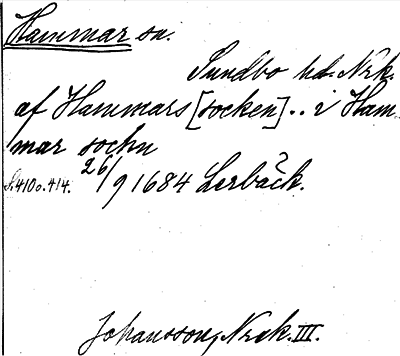 Hammar sn.
Sundbo hd. Nrk.
af Hammars [socken].. i Ham-
mar sochn
S. 410 o. 414. 26/9 1684 Lerbäck.
Johansson, Nrk. III.